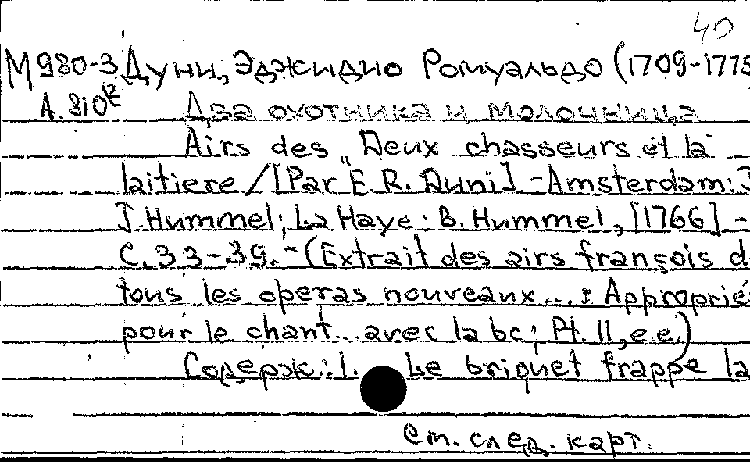 40
М 980-3 Дуни, Эджидио Ромуальдо (1709-1775
А.810 Два охотника и молочница
Airs des "Deux chasseurs et la
laitiere / [Par E.R. Duni] - Amsterdam: J
J. Hummel; La Haye: B. Hummel, [1766] -
С. 33-39. - (Extrait des airs françois d
tous les operas nouveaux... : Approprié
pour le chant... avec la bc; Pt. II, e.e.)
Содерж.: 1. Le briquet frappe la
См. след. карт.